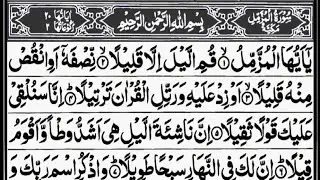 سُوْرَةُ الْمُزَّمِّلِ مَكِّيَّةٌ
بِسْمِ اللّٰهِ الرَّحْمٰنِ الرَّحِيْمِ
يٰۤاَيُّهَا الْمُزَّمِّلُ ۙ﴿۱﴾ قُمِ الَّيْلَ اِلَّا قَلِيْلًا ۙ﴿۲﴾ نِّصْفَهٗۤ اَوِ انْقُصْ
مِنْهُ قَلِيْلًا ۙ﴿۳﴾ اَوْ زِدْ عَلَيْهِ وَرَتِّلِ الْقُرْاٰنَ تَرْتِيْلًا ؕ﴿۴﴾ اِنَّا سَنُلْقِيْ
عَلَيْكَ قَوْلًا ثَقِيْلًا ﴿۵﴾ اِنَّ نَاشِئَةَ الَّيْلِ هِيَ اَشَدُّ وَطْاً وَّاَقْوَمُ
قِيْلًا ؕ﴿۶﴾ اِنَّ لَكَ فِي النَّهَارِ سَبْحًا طَوِيْلًا ؕ﴿۷﴾ وَاذْكُرِ اسْمَ رَبِّكَ وَ